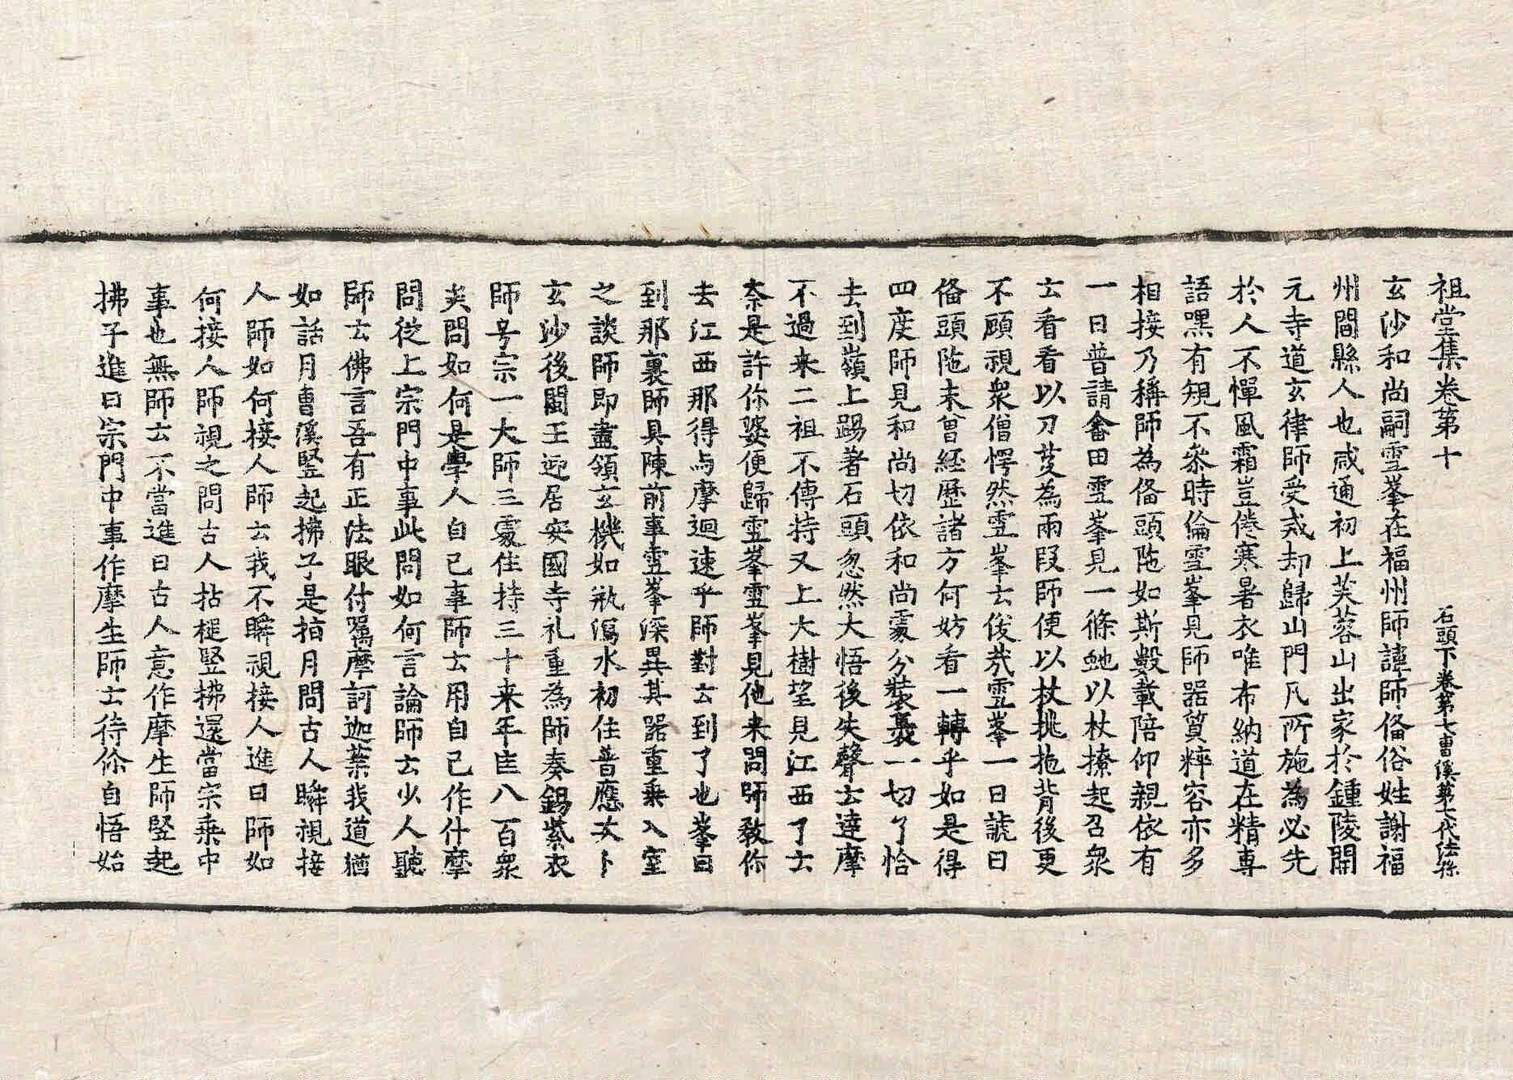 祖堂集卷第十 石頭下卷第七曹溪第七代法孫
玄沙和尚嗣雪峯在福州師諱師俻俗姓謝福
州閩縣人也咸通初上芙蓉山出家於鍾陵開
元寺道玄律師受戒却歸山門凡所施為必先
扵人不憚風霜豈倦寒暑衣唯布納道在精專
語嘿有䂓不叅時倫雪峯見師器質粹容亦多
相接乃稱師為俻頭陁如斯數載陪仰親依有
一日普請畬田雪峯見一條虵以杖撩起召衆
云看看以刀芟為兩段師便以杖挑抛背後更
不顧視衆僧愕然雪峯云俊哉雪峯一日謔曰
俻頭陁未曾経歷諸方何妨看一轉乎如是得
四度師見和尚切依和尚處分裝裹一切了恰
去到嶺上踢著石頭忽然大悟後失聲云達摩
不過来二祖不傳持又上大樹望見江西了云
奈是許你婆便歸雪峯雪峯見他来問師教你
去江西那得与摩迴速乎師對云到了也峯曰
到那裏師具陳前事雪峯深異其器重垂入室
之談師即盡領玄機如瓶瀉水初住普應次卜
玄沙後閩王迎居安國寺礼重為師奏錫紫衣
師号宗一大師三處住持三十来年匡八百衆
矣問如何是學人自己事師云用自己作什摩
問從上宗門中事此問如何言論師云少人聽
師云佛言吾有正法眼付囑摩訶迦葉我道猶
如話月曹溪竪起拂子是指月問古人瞬視接
人師如何接人師云我不瞬視接人進曰師如
何接人師視之問古人拈槌竪拂還當宗乘中
事也無師云不當進曰古人意作摩生師竪起
拂子進曰宗門中事作摩生師云待你自悟始